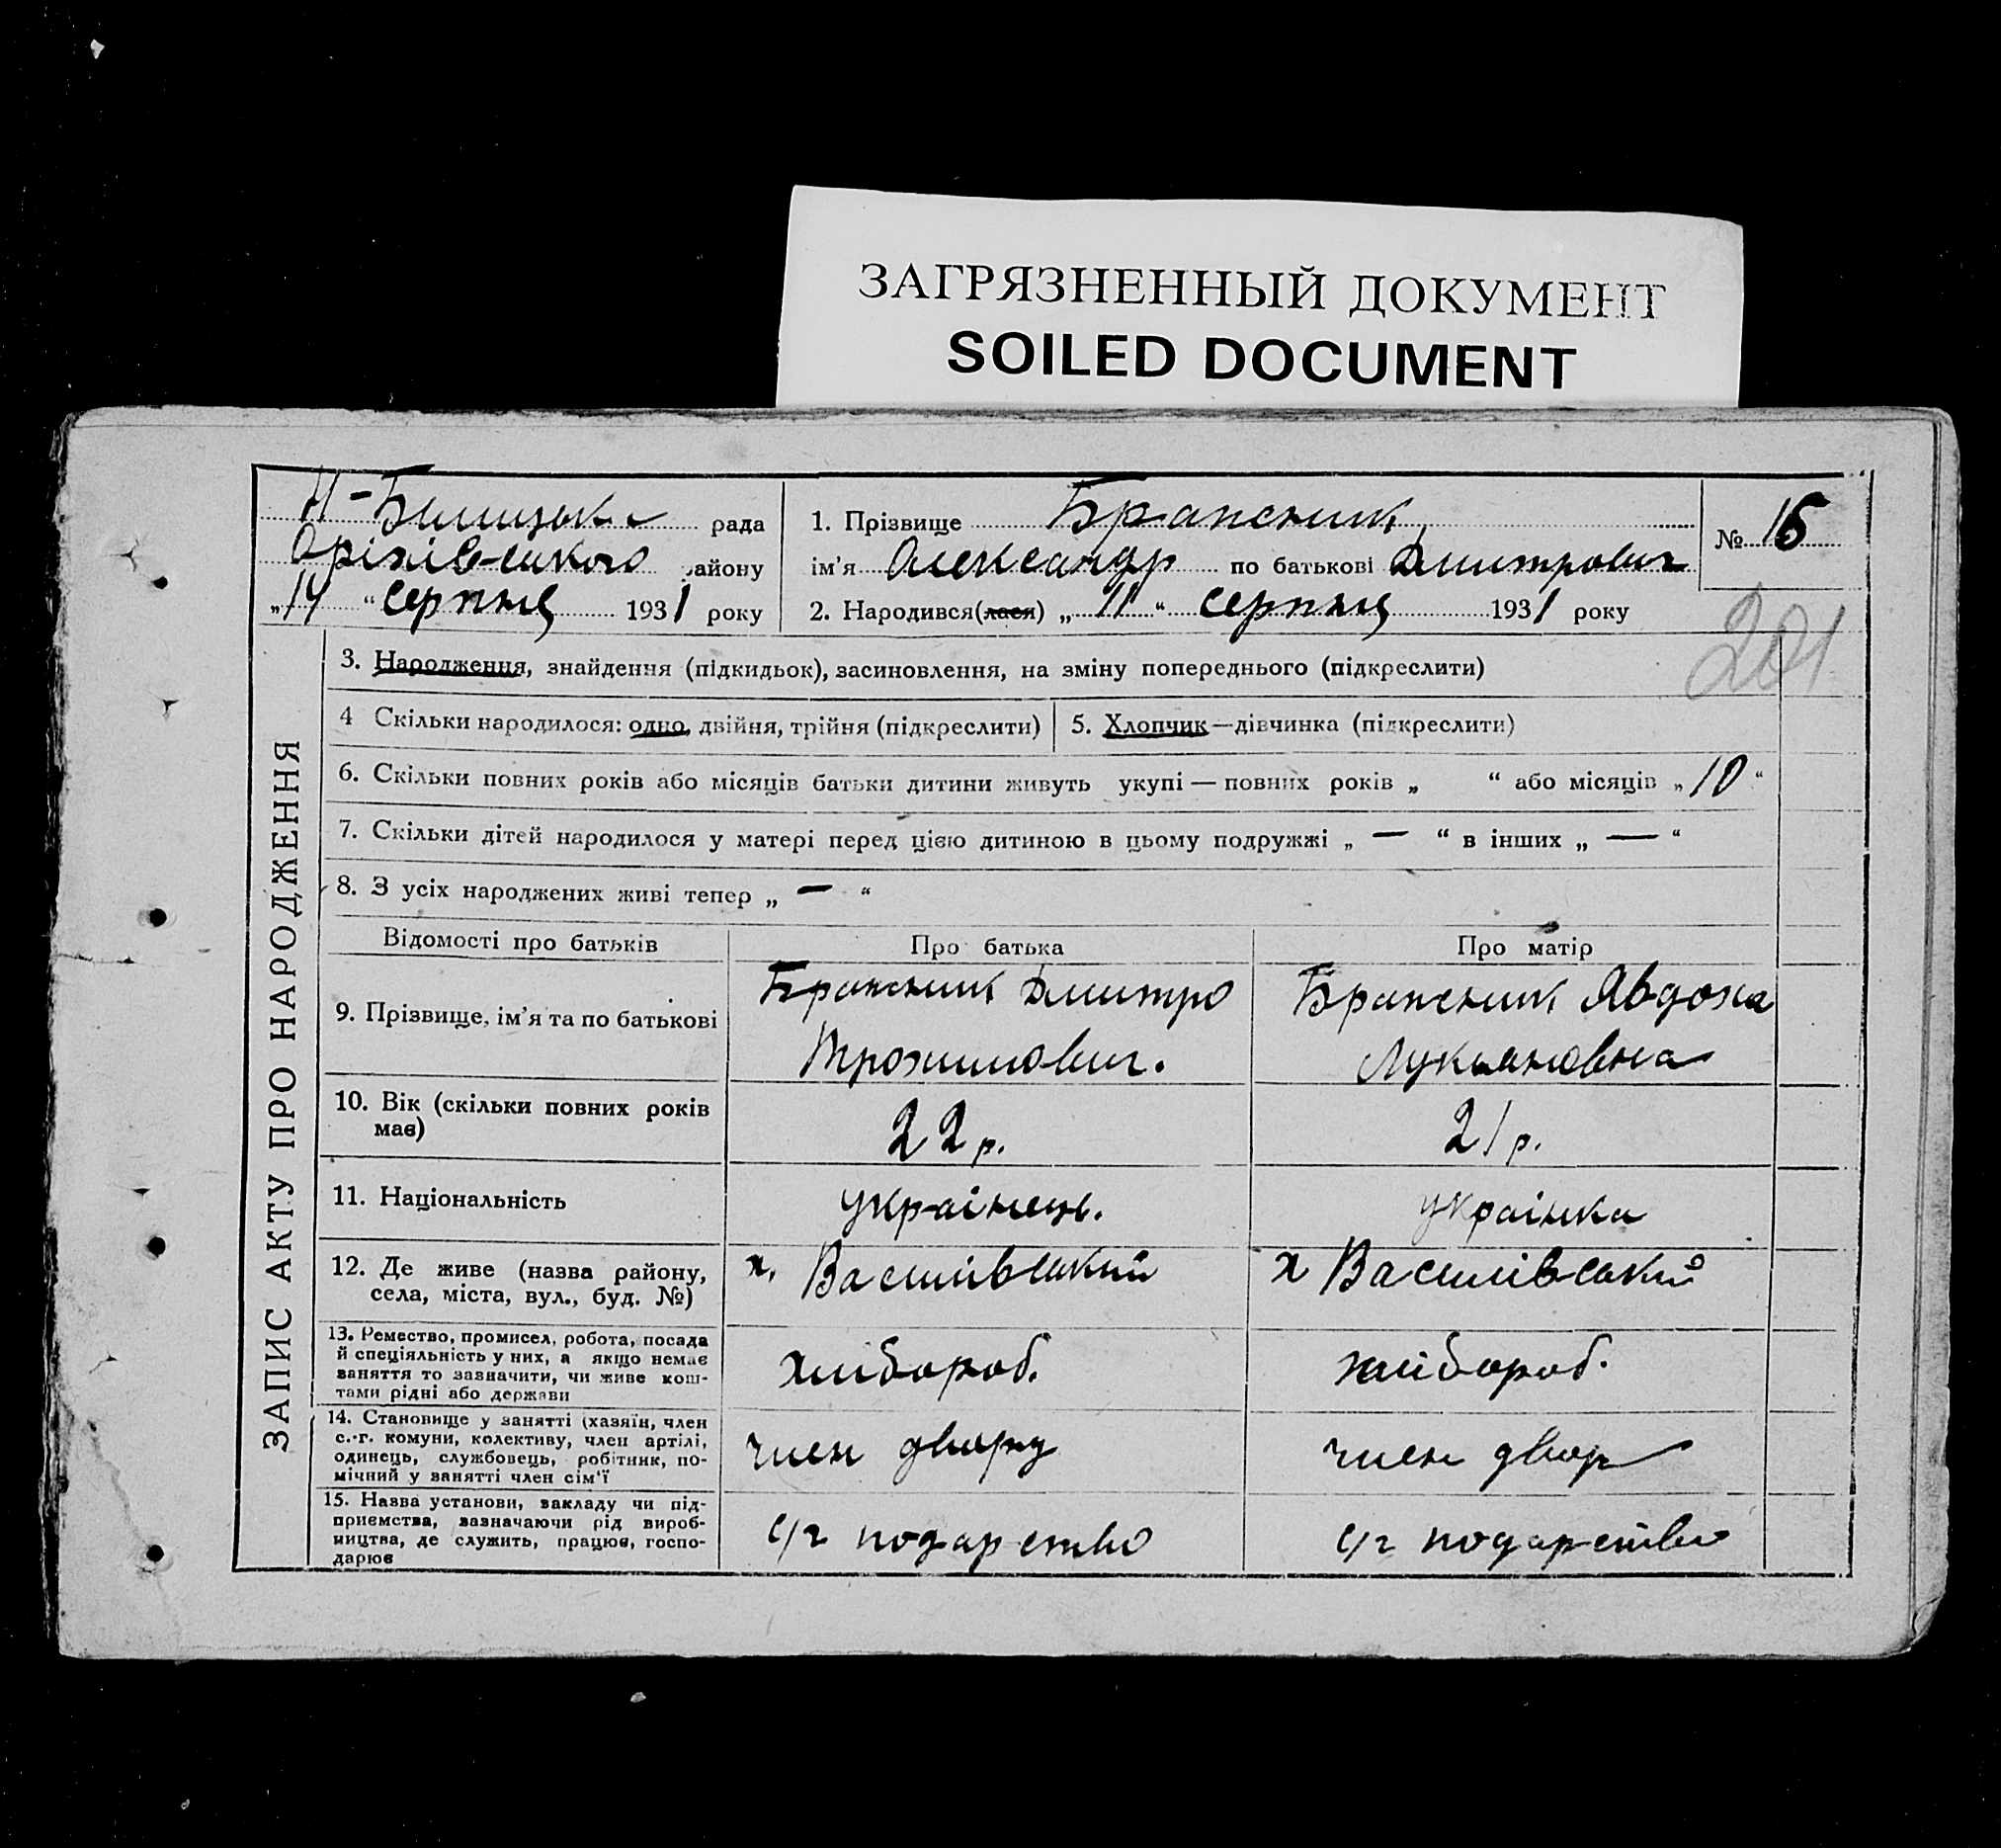 ЗАГРЯЗНЕННЫЙ ДОКУМЕНТ
SOILED DOCUMENT
рада
району
„14“ серпня 1931 року
1. Прізвище Брапсник
ім'я Олександр по батькові Дмитрович
2. Народився(лася) „11“ серпня 1931 року
№ 16
201
ЗАПИС АКТУ ПРО НАРОДЖЕННЯ
3. Народження, знайдення (підкидьок), засиновлення, на зміну попереднього (підкреслити)
4 Скільки народилося: одно, двійня, трійня (підкреслити)
5. Хлопчик—дівчинка (підкреслити)
6. Скільки повних років або місяців батьки дитини живуть укупі — повних років „ “ або місяців „10“
7. Скільки дітей народилося у матері перед цією дитиною в цьому подружжі „ — “ в інших „ — “
8. З усіх народжених живі тепер „ — “
Відомості про батьків
Про батька
Про матір
9. Прізвище, ім'я та по батькові
Брапсник Дмитро
Трохимович.
Брапсник Явдоха
Лукьяновна
10. Вік (скільки повних років
має)
22 р.
21 р.
11. Національність
українець.
українка
12. Де живе (назва району,
села, міста, вул., буд. №)
х. Василівський
х Василівський
13. Ремество, промисел, робота, посада
й спеціяльність у них, а якщо немає
заняття то зазначити, чи живе кош-
тами рідні або держави
хлібороб.
хлібороб.
14. Становище у занятті (хазяїн, член
с.-г. комуни, колективу, член артілі,
одинець, службовець, робітник, по-
мічний у занятті член сім'ї
член двору
член двор
15. Назва установи, закладу чи під-
приємства, зазначаючи рід вироб-
ництва, де служить, працює, госпо-
дарює
с/г
с/г